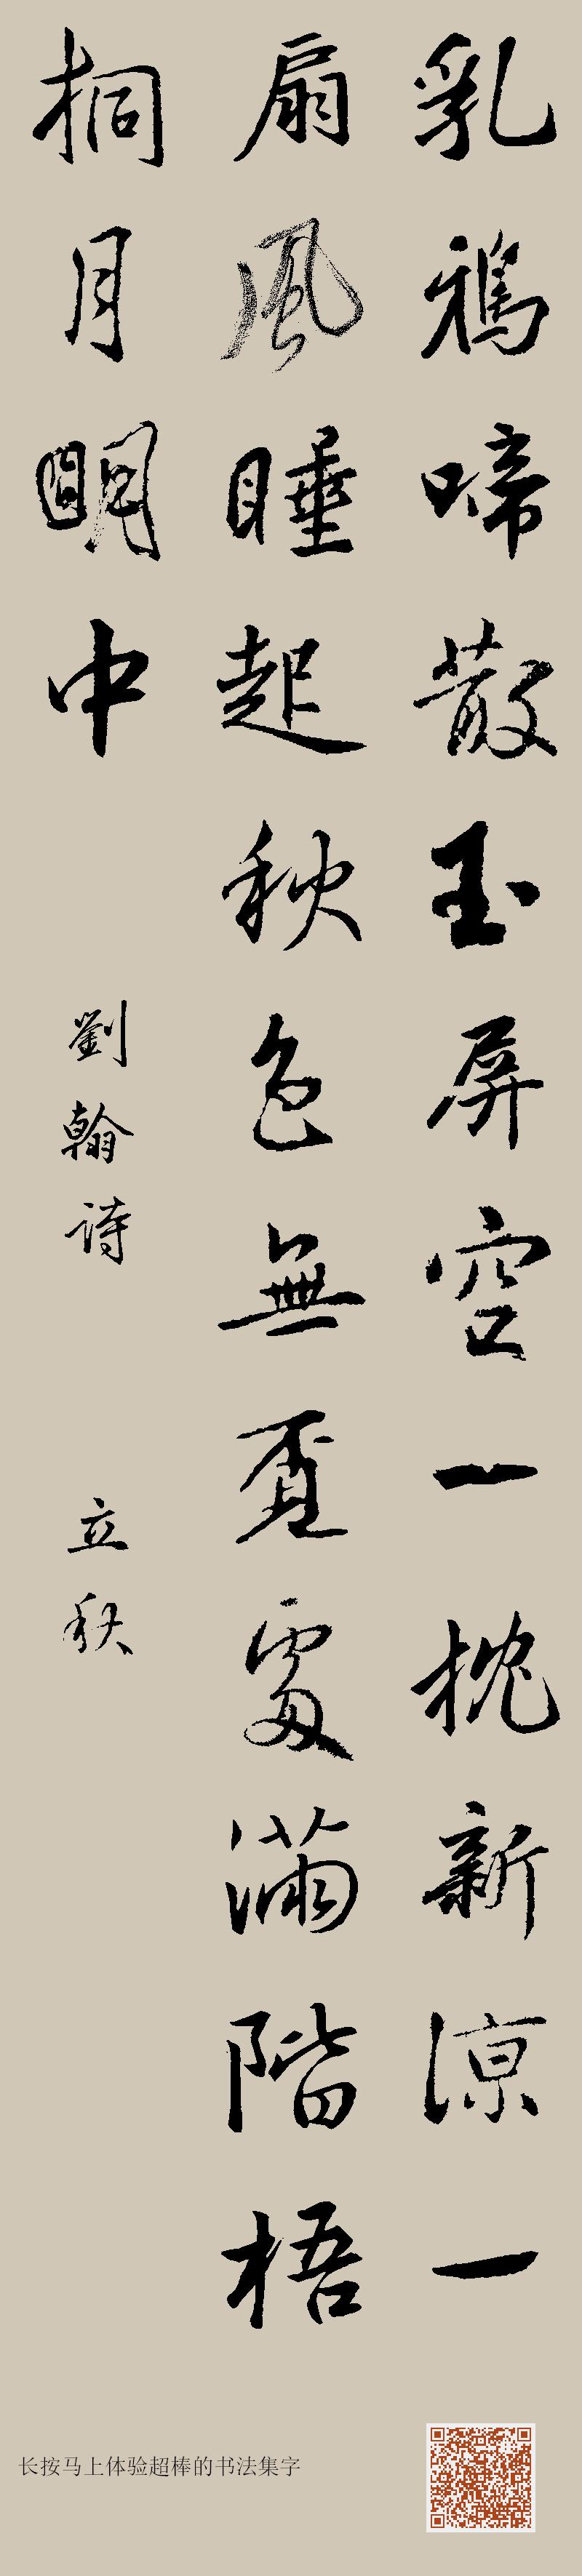 乳鴉啼散玉屏空一枕新涼一
扇風睡起秋色無覓處滿階梧
桐月明中
劉翰詩
立秋
长按马上体验超棒的书法集字